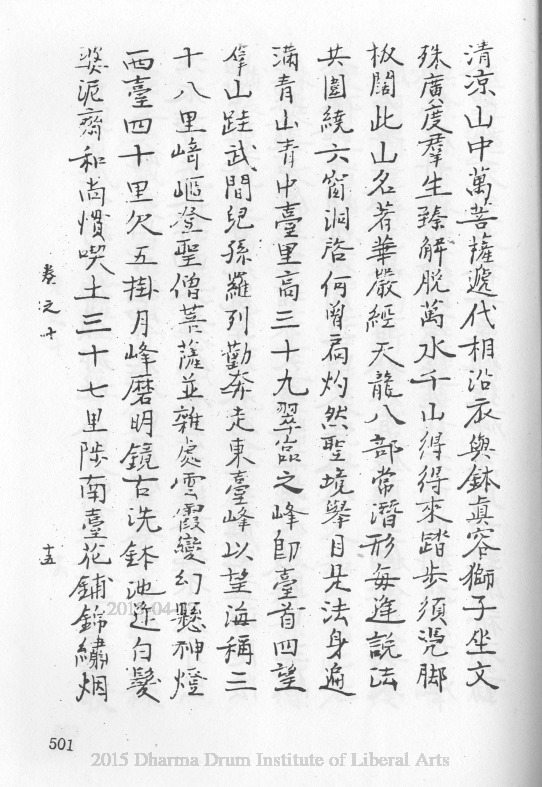 清涼山中萬菩薩遞代相沿衣與鉢真容獅子坐文
殊廣度羣生臻解脫萬水千山得得來踏步須凭脚
板闊此山名著華嚴經天龍八部常潛形每逢說法
共圍繞六窗洞啓何曾扃灼然聖境舉目是法身遍
滿青山青中臺里高三十九翠岩之峰即臺首四望
羣山跬武間兒孫羅列勤奔走東臺峰以望海稱三
十八里崎嶇登聖僧菩薩並雜處雲霞變幻懸神燈
西臺四十里欠五掛月峰磨明鏡古洗鉢池逢白髮
婆泥齋和尚慣喫土三十七里陟南臺花鋪錦繡烟
卷之十
十五
501
2015-04-
2015 Dharma Drum Institute of Liberal Arts